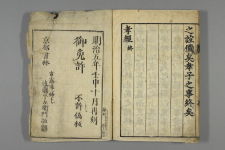 之誼備矣孝子之事終矣
孝經 終
明治五年壬申十月再刻
御免許
不許偽板
京都書林